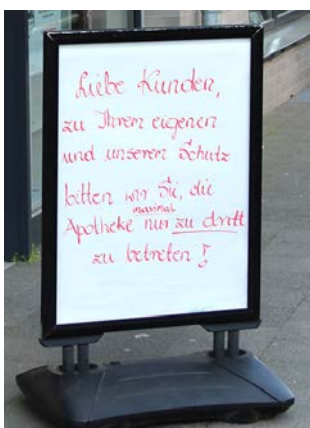 Liebe Kunden,
zu Ihrem eigenen
und unserem Schutz
bitten wir Sie, die
maximal
Apotheke nur zu dritt
zu betreten !